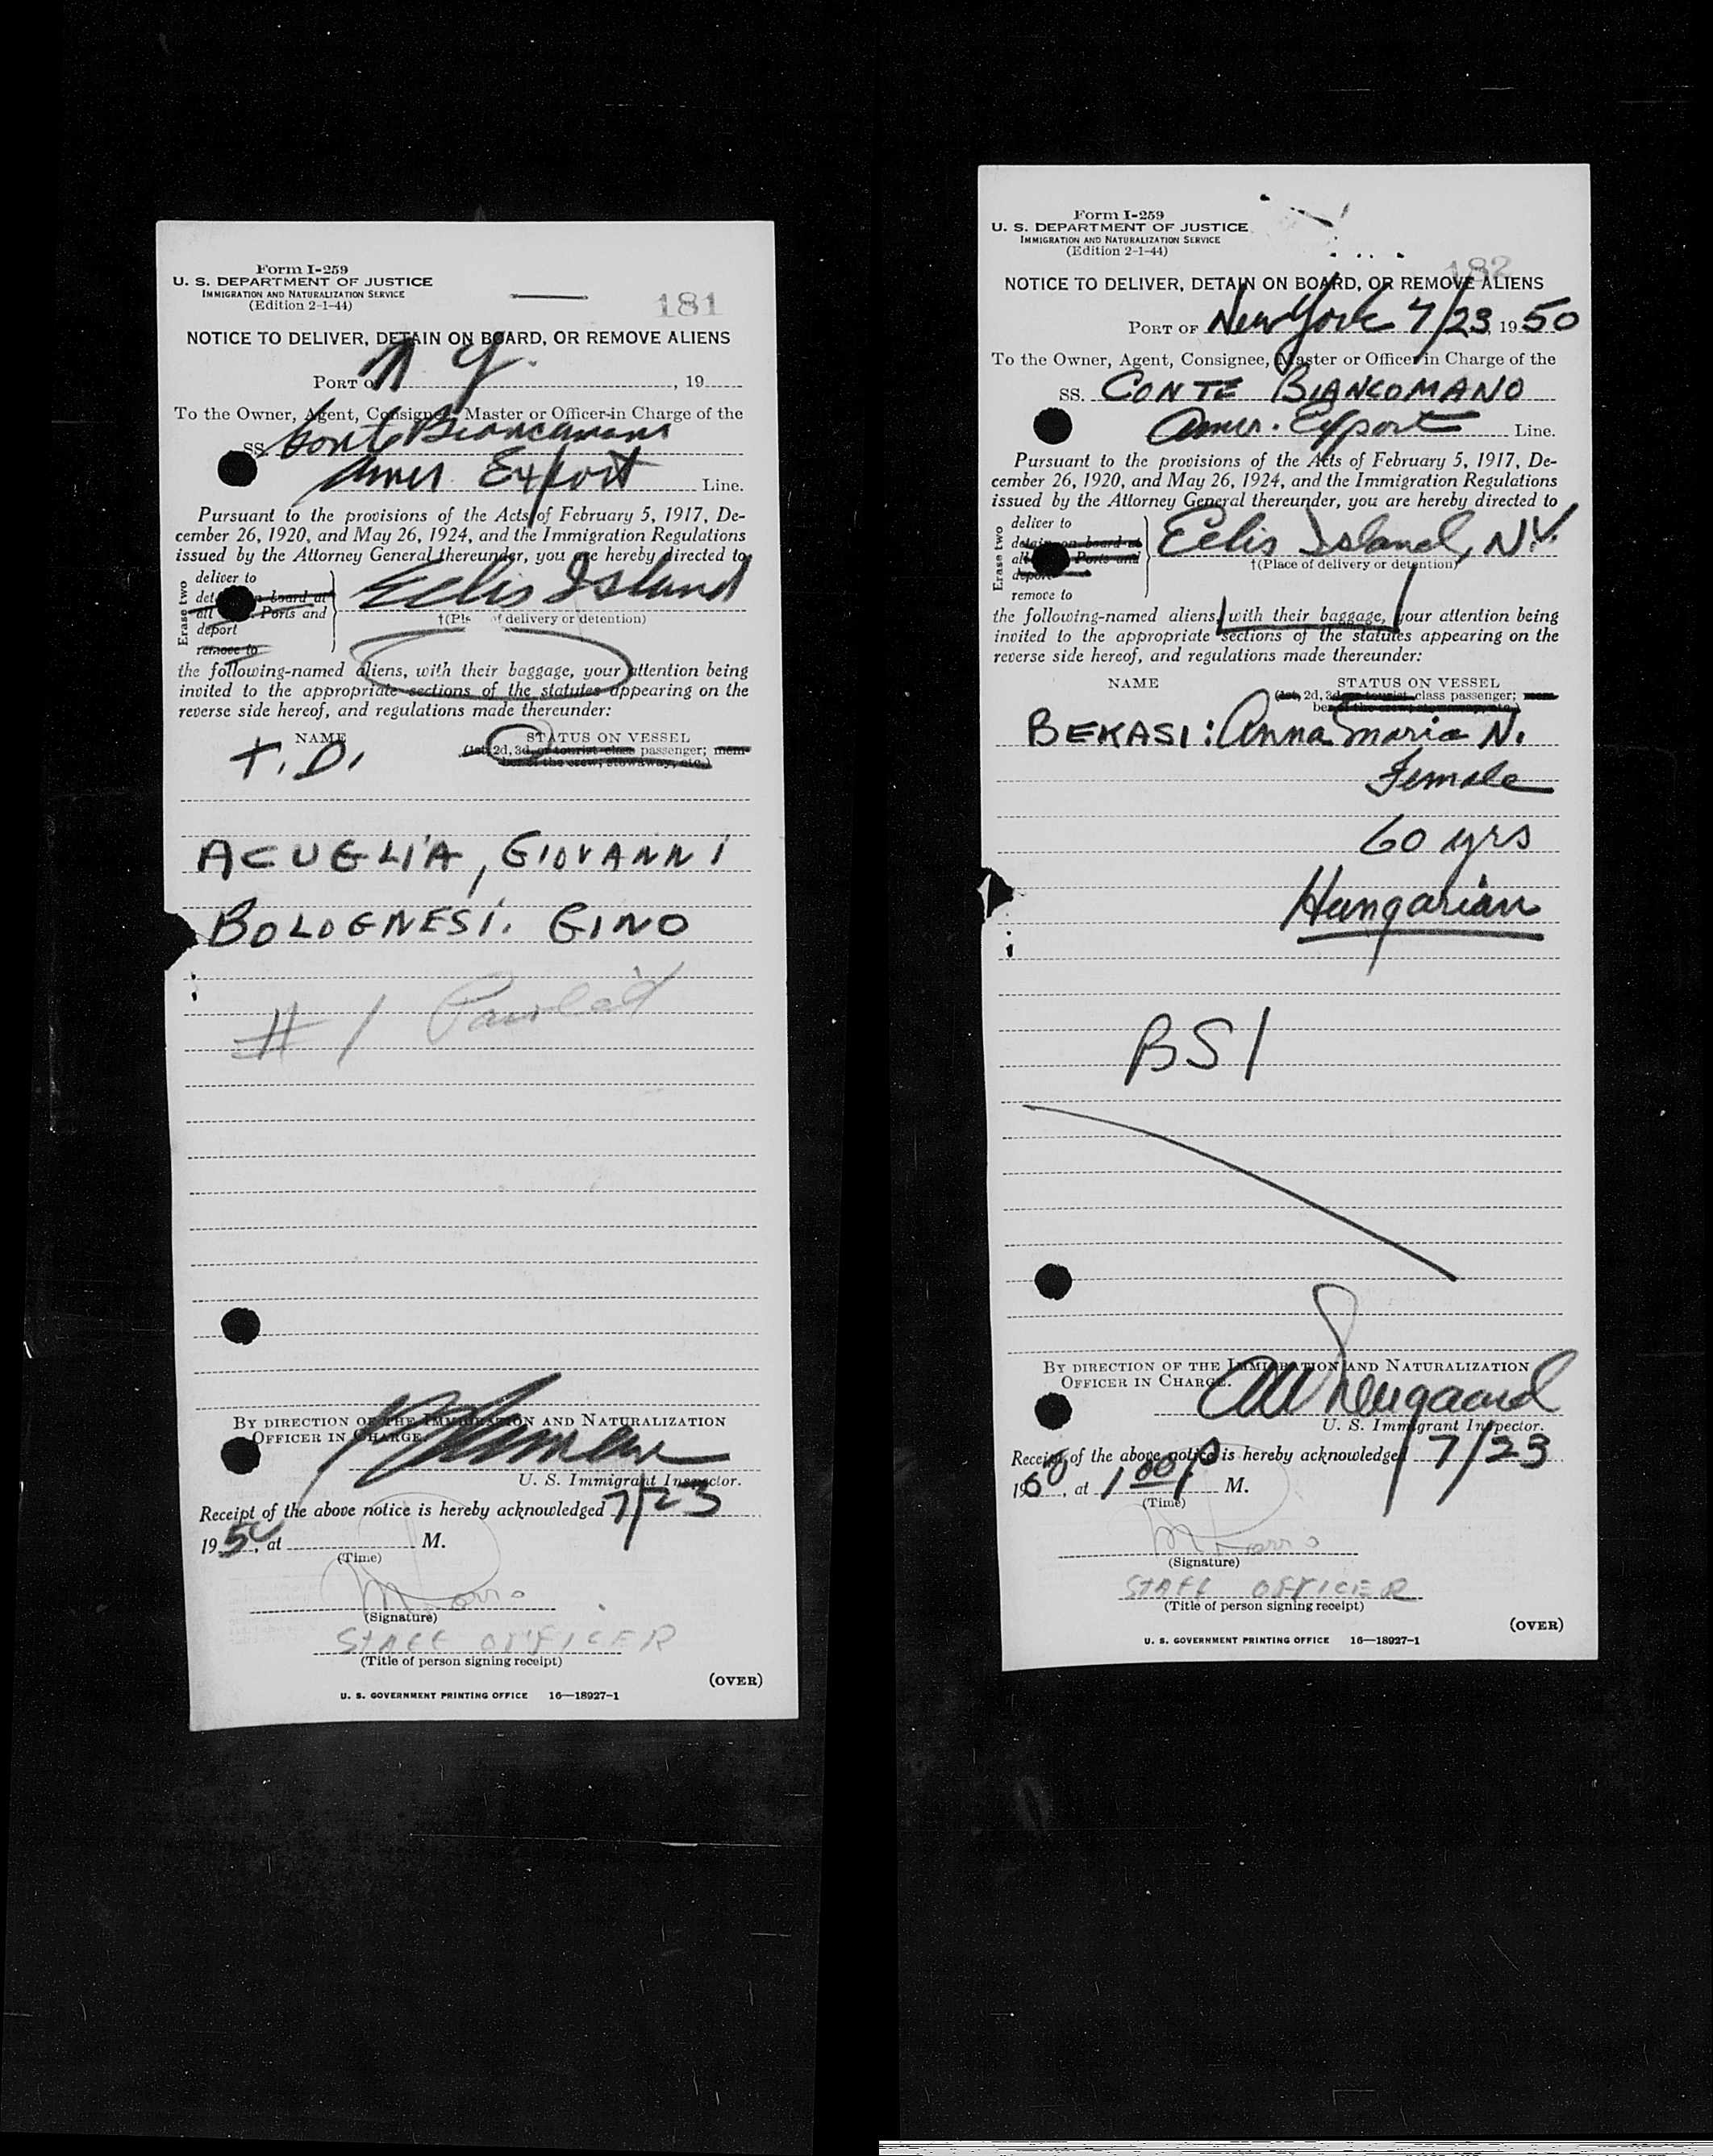 Form I-259
U. S. DEPARTMENT OF JUSTICE
IMMIGRATION AND NATURALIZATION SERVICE
(Edition 2-1-44)
181
NOTICE TO DELIVER, DETAIN ON BOARD, OR REMOVE ALIENS
PORT OF N Y. , 19
To the Owner, Agent, Consignee, Master or Officer in Charge of the
SS. Conte Biancamano
Amer Export Line.
Pursuant to the provisions of the Acts of February 5, 1917, De-
cember 26, 1920, and May 26, 1924, and the Immigration Regulations
issued by the Attorney General thereunder, you are hereby directed to
Erase two
deliver to
on board at
all Ports and
deport
remove to
Ellis Island
†(Pl of delivery or detention)
the following-named aliens, with their baggage, your attention being
invited to the appropriate sections of the statutes appearing on the
reverse side hereof, and regulations made thereunder:
NAME STATUS ON VESSEL
(1st, 2d, 3d, or tourist class passenger; mem-
ber of the crew; stowaway, etc.)
T. D.
ACUGLIA, GIOVANNI
BOLOGNESI. GINO
# 1
BY DIRECTION OF THE IMMIGRATION AND NATURALIZATION
OFFICER IN CHARGE.
U. S. Immigrant Inspector.
Receipt of the above notice is hereby acknowledged 7/23
1950, at M.
(Time)
(Signature)
STAFF OFFICER
(Title of person signing receipt)
(OVER)
U. S. GOVERNMENT PRINTING OFFICE 16—18927-1
Form I-259
U. S. DEPARTMENT OF JUSTICE
IMMIGRATION AND NATURALIZATION SERVICE
(Edition 2-1-44)
182
NOTICE TO DELIVER, DETAIN ON BOARD, OR REMOVE ALIENS
PORT OF New York 7/23 1950
To the Owner, Agent, Consignee, Master or Officer in Charge of the
SS. CONTE BIANCOMANO
Amer. Export Line.
Pursuant to the provisions of the Acts of February 5, 1917, De-
cember 26, 1920, and May 26, 1924, and the Immigration Regulations
issued by the Attorney General thereunder, you are hereby directed to
Erase two
deliver to
detain on board at
all Ports and
deport
remove to
Ellis Island, N.Y.
†(Place of delivery or detention)
the following-named aliens, with their baggage, your attention being
invited to the appropriate sections of the statutes appearing on the
reverse side hereof, and regulations made thereunder:
NAME STATUS ON VESSEL
(1st, 2d, 3d, or tourist class passenger; mem-
ber of the crew; stowaway, etc.)
BEKASI: Anna Maria N.
Female
60 yrs
Hungarian
BSI
BY DIRECTION OF THE IMMIGRATION AND NATURALIZATION
OFFICER IN CHARGE.
U. S. Immigrant Inspector.
Receipt of the above notice is hereby acknowledged 7/23
1950, at 1 00 P M.
(Time)
(Signature)
STAFF OFFICER
(Title of person signing receipt)
(OVER)
U. S. GOVERNMENT PRINTING OFFICE 16—18927-1